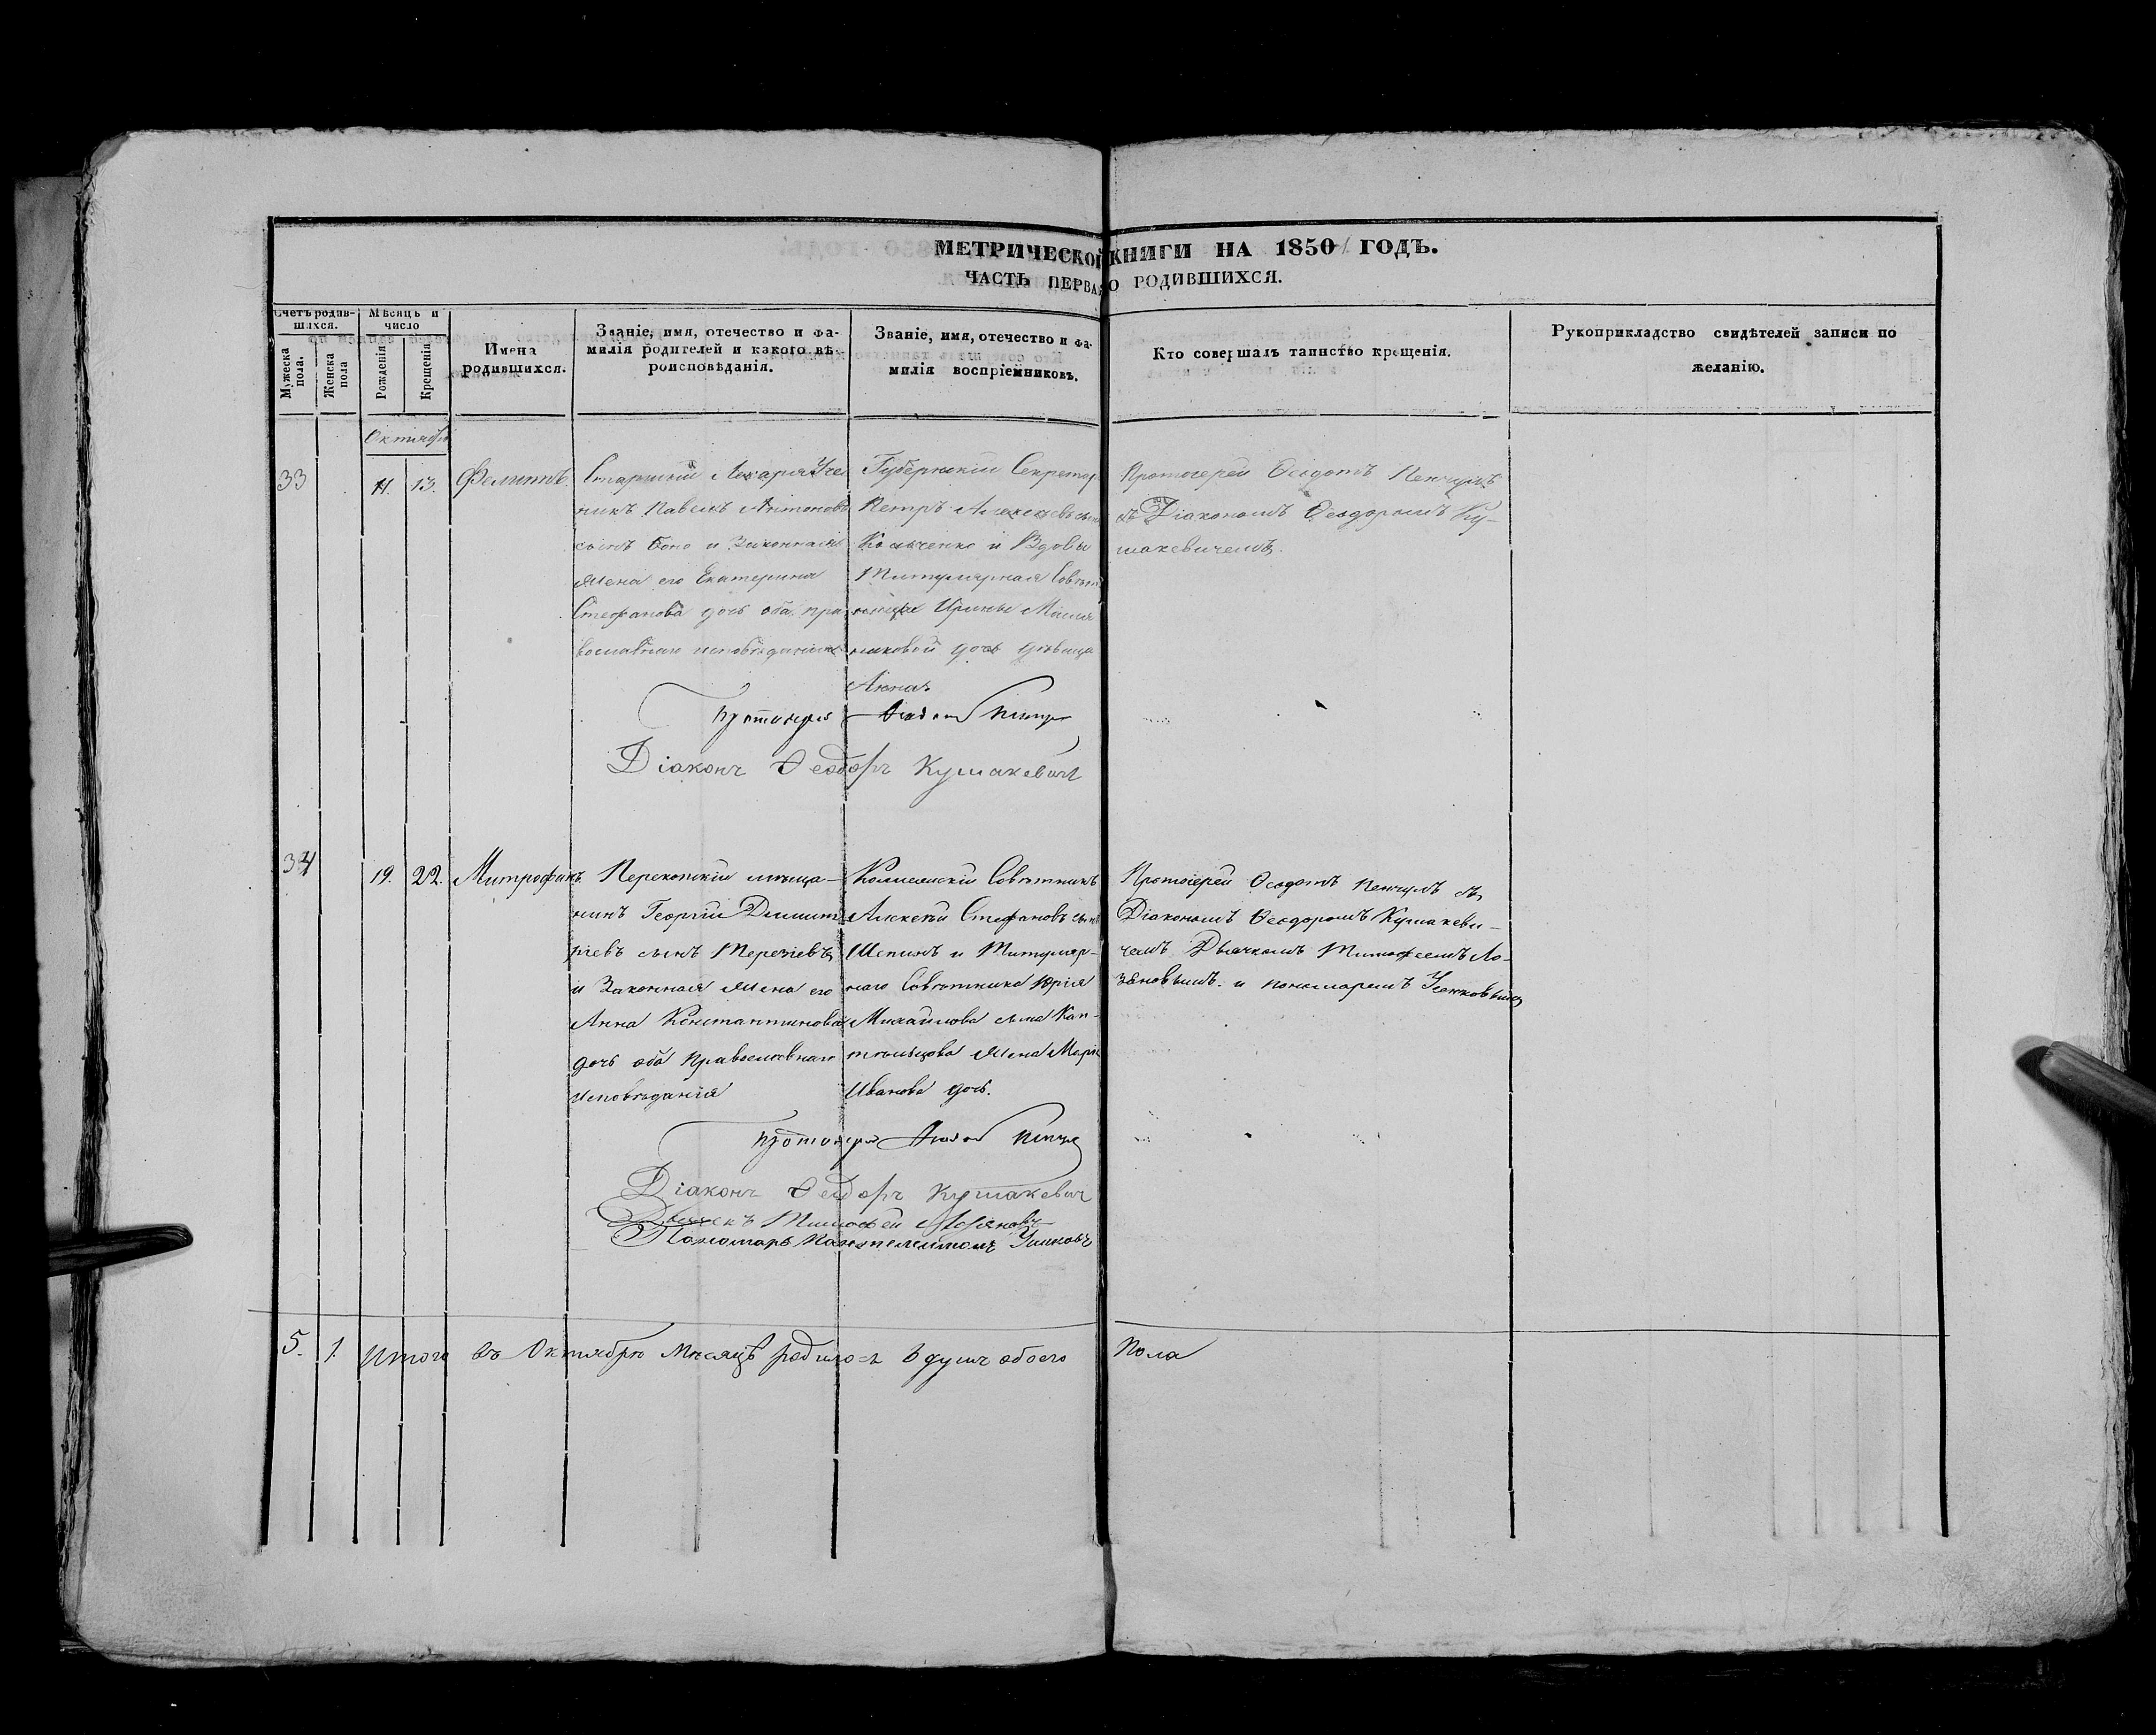 МЕТРИЧЕСКОЙ КНИГИ НА 1850 ГОДЪ.
ЧАСТЬ ПЕРВАЯ О РОДИВШИХСЯ.
Счетъ родив-
шихся.
Мужеска пола.
Женска пола
Мѣсяцъ и
число
Рожденія
Крещенія
Имена
родившихся.
Званіе, имя, отечество и фа-
милія родителей и какого вѣ-
роисповѣданія.
Званіе, имя, отечество и фа-
милія воспріемниковъ.
Кто совершалъ таинство крещенія.
Рукоприкладство свидѣтелей записи по
желанію.
Октября
33
11.
13.
Старшій Лекаря Уче
никъ Павелъ Антоновъ
сынъ и Законная
жена его Екатерина
Стефанова дочь оба пра
вославнаго исповѣданія
Губернскій Секретарь
Петръ Алексѣевъ сынъ
и Вдовы
Титулярная Совѣт
ницы Ирины
дочь дѣвица
Анна
Протоіерей Ѳеодотъ
съ Діакономъ Ѳеодоромъ Ку-
шакевичемъ.
Протоіерей Ѳеодотъ
Діаконъ Ѳеодоръ Кушакевичъ
34
19.
22.
Митрофанъ.
Перекопскій мѣща-
нинъ Георгій Димит
ріевъ сынъ
и Законная жена его
Анна Константинова
дочь оба Православнаго
исповѣданія
Коллежскій Совѣтникъ
Алексѣй Стефановъ сынъ
и Титуляр-
наго Совѣтника Юрія
Михайлова сына Кап-
жена Марія
Иванова дочь.
Протоіерей Ѳеодотъ съ
Діакономъ Ѳеодоромъ Кушакеви-
чемъ Дьячкомъ Тимофеемъ Ло-
зяновымъ. и пономаремъ
Протоіерей Ѳеодотъ
Діаконъ Ѳеодоръ Кушакевичъ
Дьячекъ Тимофей
Пономарь
5.
1
Итого въ Октябрѣ Мѣсяцѣ родилось 6 душъ обоего Пола